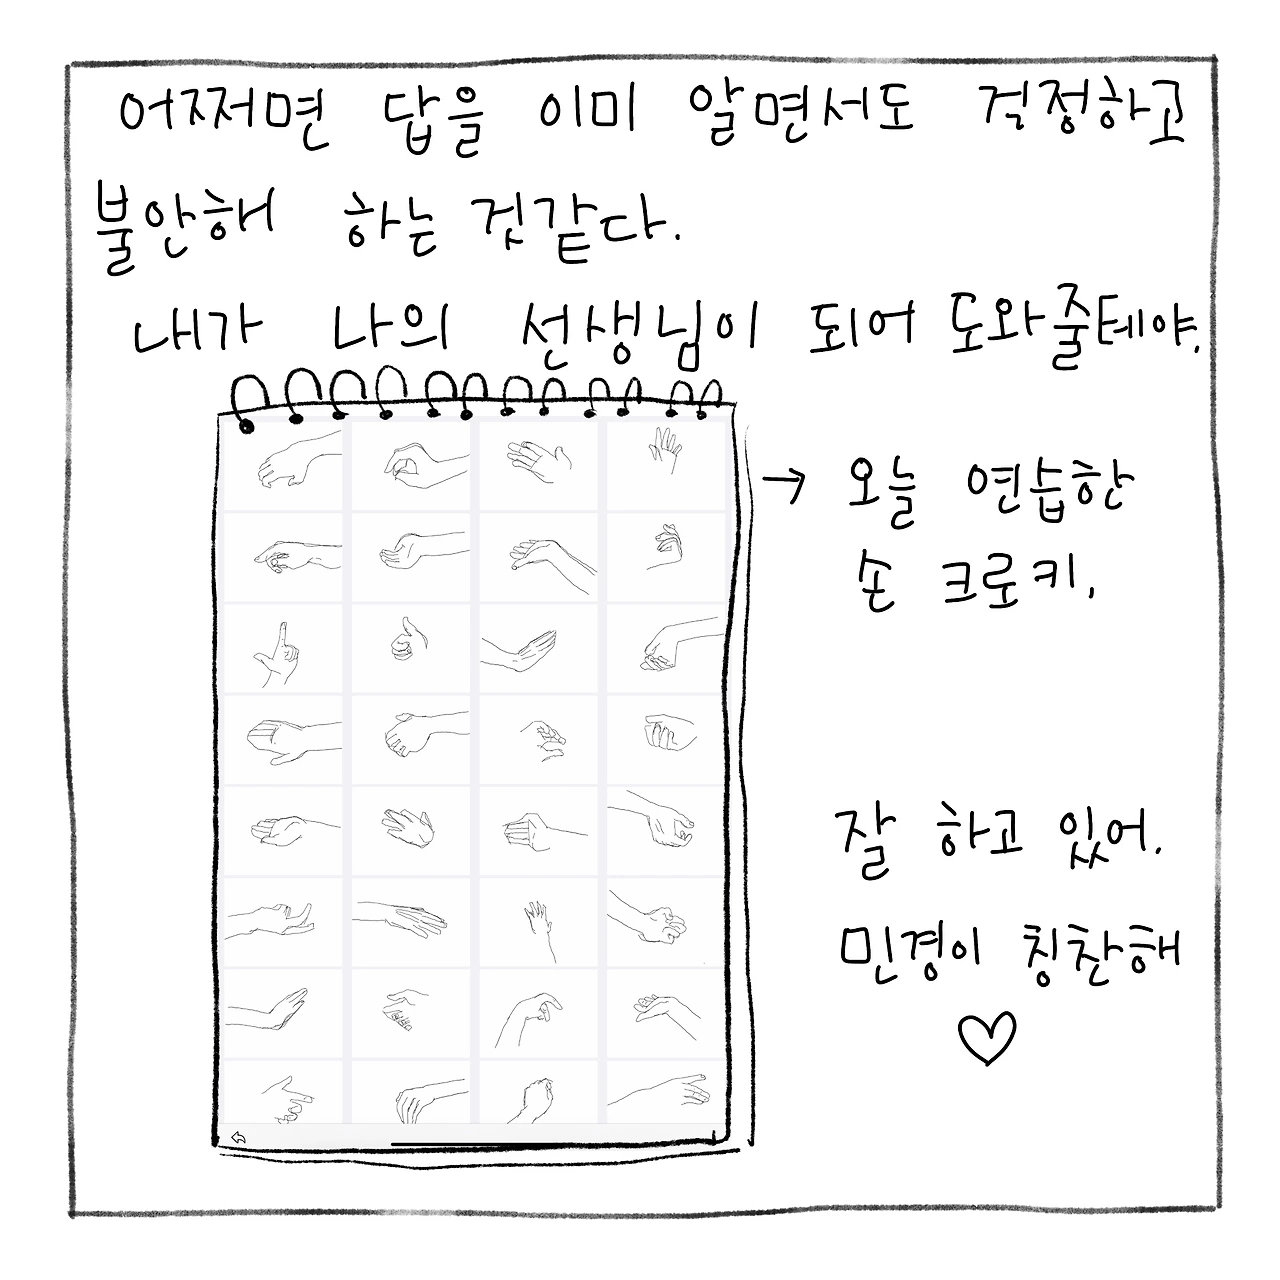 어쩌면 답을 이미 알면서도 걱정하고
불안해 하는 것같다.
내가 나의 선생님이 되어 도와줄테야.
→ 오늘 연습한
손 크로키.
잘 하고 있어.
민경이 칭찬해
♡